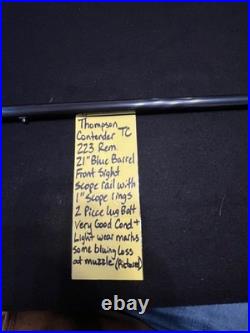 Thompson
Contender TC
223 Rem.
21" Blue Barrel
Front Sight
scope rail with
1" scope rings
2 Piece lug Bolt
Very Good Cond +
Light wear marks
some bluing loss
at muzzle (Pictured)